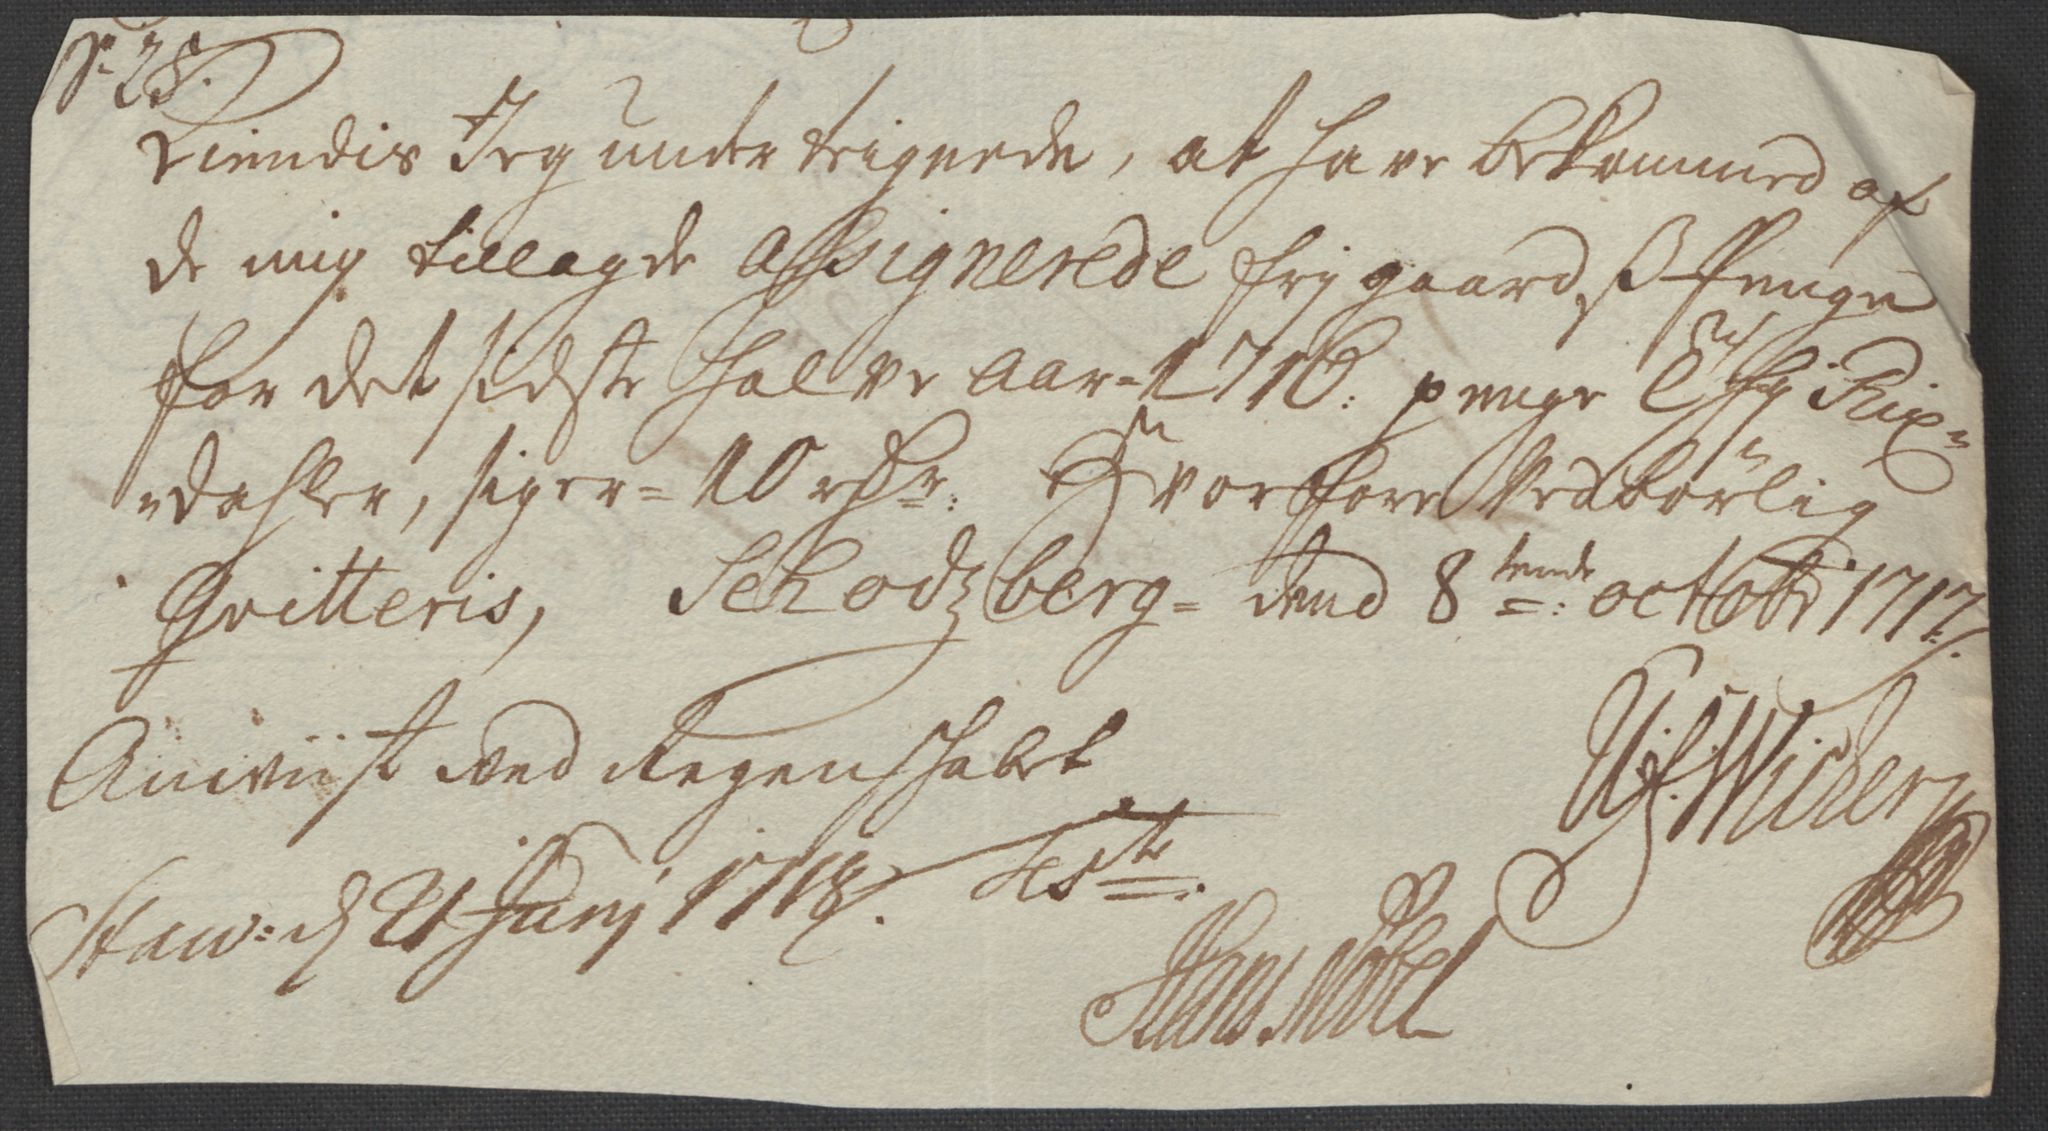 No 28.
Kiendis Jeg underteignede, at have bekommed af
de mig tillagde Assignerede frj gaardsß Penge
for det sidste halve aar = 1716: penge Thj Rix=
=dahler, siger = 10 rdr: hvorfore vedbörlig
Qvitteris, Schodzberg = dend 8tende: octobr 1717/.
Anviist ved Regenskabet
Staw: d 21 Junj 1718. test:
Hans Nobel